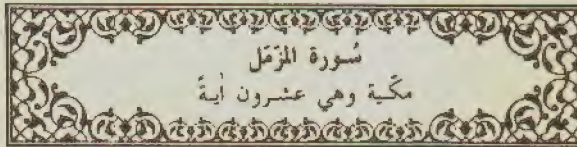 سُورة المزّمّل
مكّية وهي عشرون أيةً